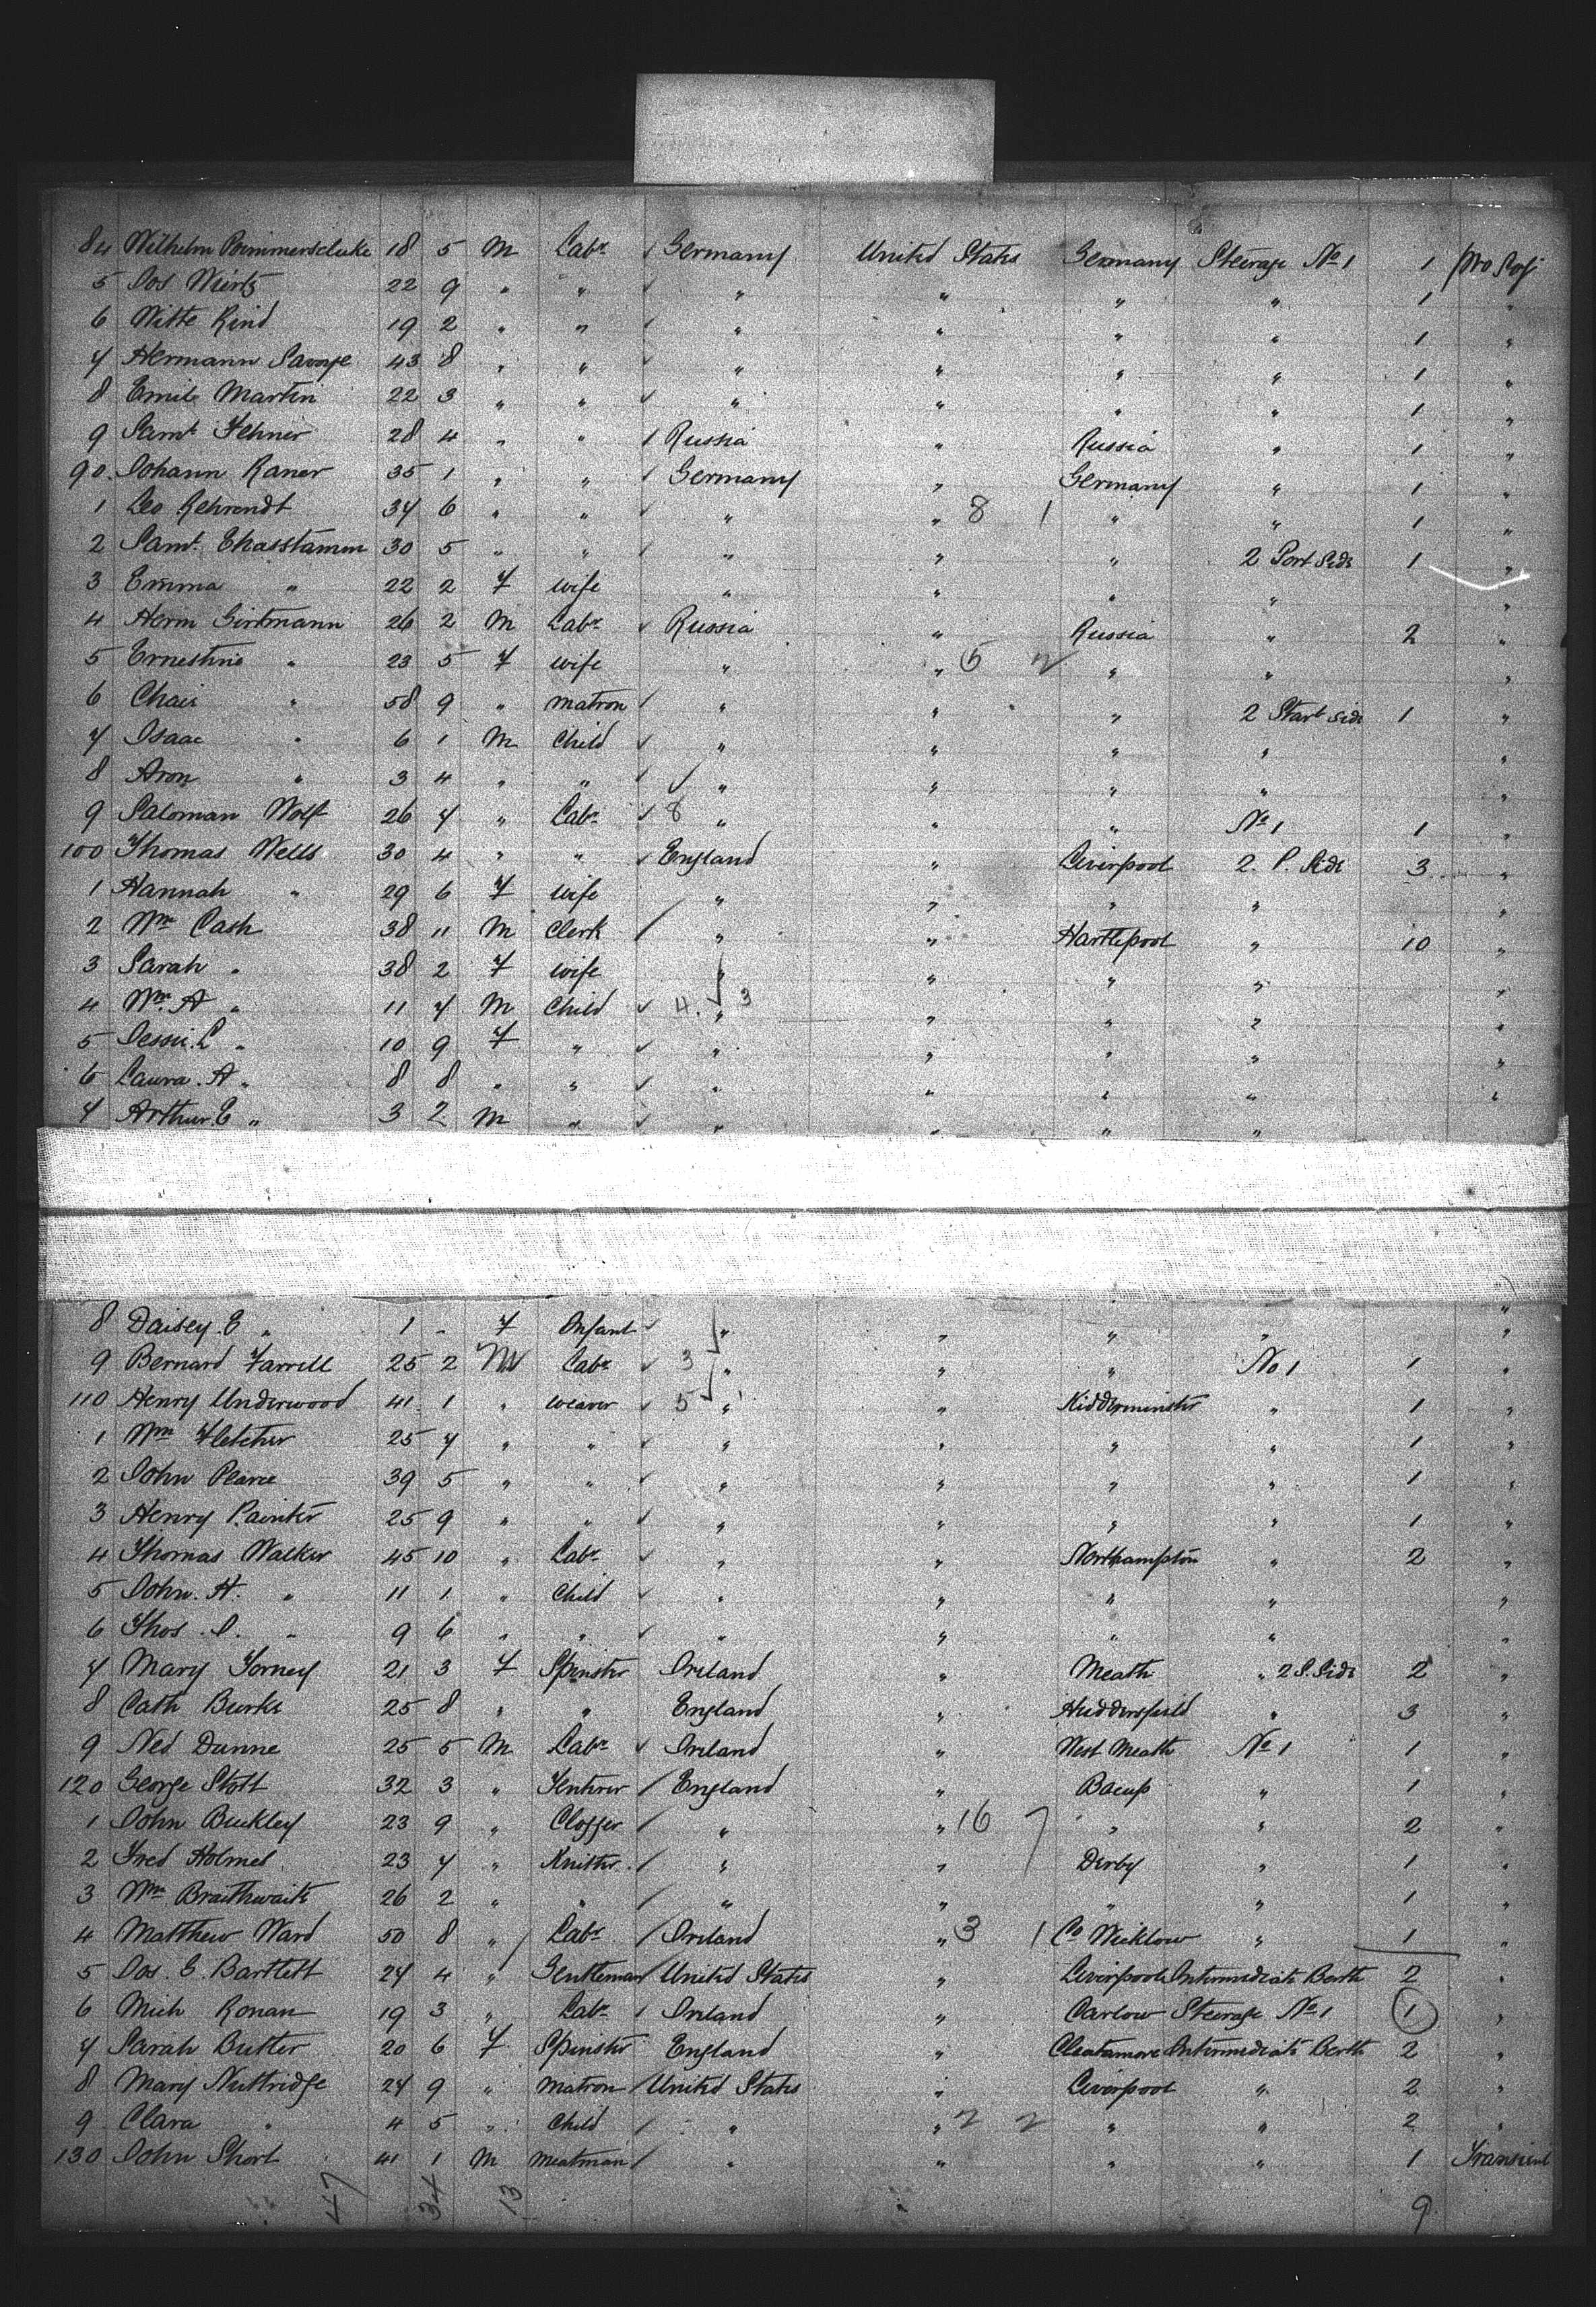 84 Wilhelm 18 5 M Labr Germany United States Germany Steerage No 1 1 Pro Soj
5 Jos Wirtz 22 9 " " " " " " 1 "
6 Witte Rind 19 2 " " " " " " 1 "
7 Hermann Savoye 43 8 " " " " " " 1 "
8 Emile Martin 22 3 " " " " " " 1 "
9 Saml Fehner 28 4 " " Russia " Russia " 1 "
90 Johann Raner 35 1 " " Germany " Germany " 1 "
1 Leo Rehrendt 34 6 " " " " 8 1 " " 1 "
2 Saml 30 5 " " " " " 2 Port Side 1 "
3 Emma " 22 2 F wife " " " " "
4 Herm Girtmann 26 2 M Labr Russia " Russia " 2 "
5 Ernestine " 23 5 F wife " " 5 2 " " "
6 Chaie " 58 9 " matron " " " 2 Starb Side 1 "
7 Isaac " 6 1 M Child " " " " "
8 Aron " 3 4 " " " " " " "
9 Saloman Wolf 26 7 " Labr 8 " " " No 1 1 "
100 Thomas Wells 30 4 " " England " Liverpool 2. P. Side 3 "
1 Hannah " 29 6 F wife " " " " "
2 Wm Cash 38 11 M Clerk " " Hartlepool " 10 "
3 Sarah " 38 2 F wife " " " " "
4 Wm A " 11 7 M Child 4. " 3 " " " "
5 Jessie L " 10 9 F " " " " " "
6 Laura A " 8 8 " " " " " " "
7 Arthur E " 3 2 M " " " " "
8 Daisey E " 1 - F Infant " " " " "
9 Bernard Farrell 25 2 M Labr 3 " " " No 1 1 "
110 Henry Underwood 41 1 " weaver 5 " " Kidderminster " 1 "
1 Wm Fletcher 25 7 " " " " " " 1 "
2 John Pearce 39 5 " " " " " " 1 "
3 Henry Painter 25 9 " " " " " " 1 "
4 Thomas Walker 45 10 " Labr " " Northampton " 2 "
5 John. H. " 11 1 " Child " " " " "
6 Thos. J. " 9 6 " " " " " " "
7 Mary Torney 21 3 F Spinster Ireland " Meath " 2 S. Side 2 "
8 Cath Burke 25 8 " " England " Huddersfield " 3 "
9 Ned Dunne 25 5 M Labr Ireland " West Meath No 1 1 "
120 George Stott 32 3 " Tenterer England " Bacup " 1 "
1 John Buckley 23 9 " Clogger " " 16 7 " " 2 "
2 Fred Holmes 23 7 " Knitter " " Derby " 1 "
3 Wm Braithwaite 26 2 " " " " " " 1 "
4 Matthew Ward 50 8 " Labr Ireland " 3 1 Co Wicklow " 1 "
5 Jos. E. Bartlett 24 4 " Gentleman United States " Liverpool Intermediate Berth 2 "
6 Mich Ronan 19 3 " Labr Ireland " Carlow Steerage No 1 1 "
7 Sarah Butter 20 6 F Spinster England " Cleatamore Intermediate Berth 2 "
8 Mary Nuttridge 24 9 " Matron United States " Liverpool " 2 "
9 Clara " 4 5 " Child " " 2 2 " " 2 "
130 John Short 41 1 M Meatman " " " " 1 Transient
47 34 13 9